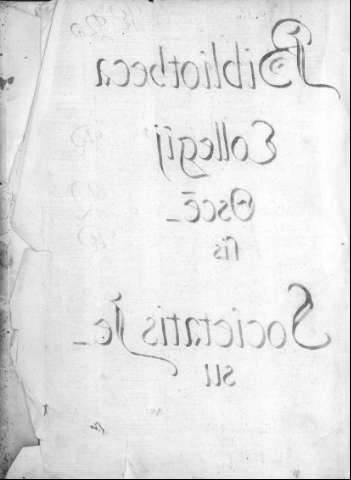 Bibliotheca
Collegij
Oscē_
sis
Societatis Je_
su